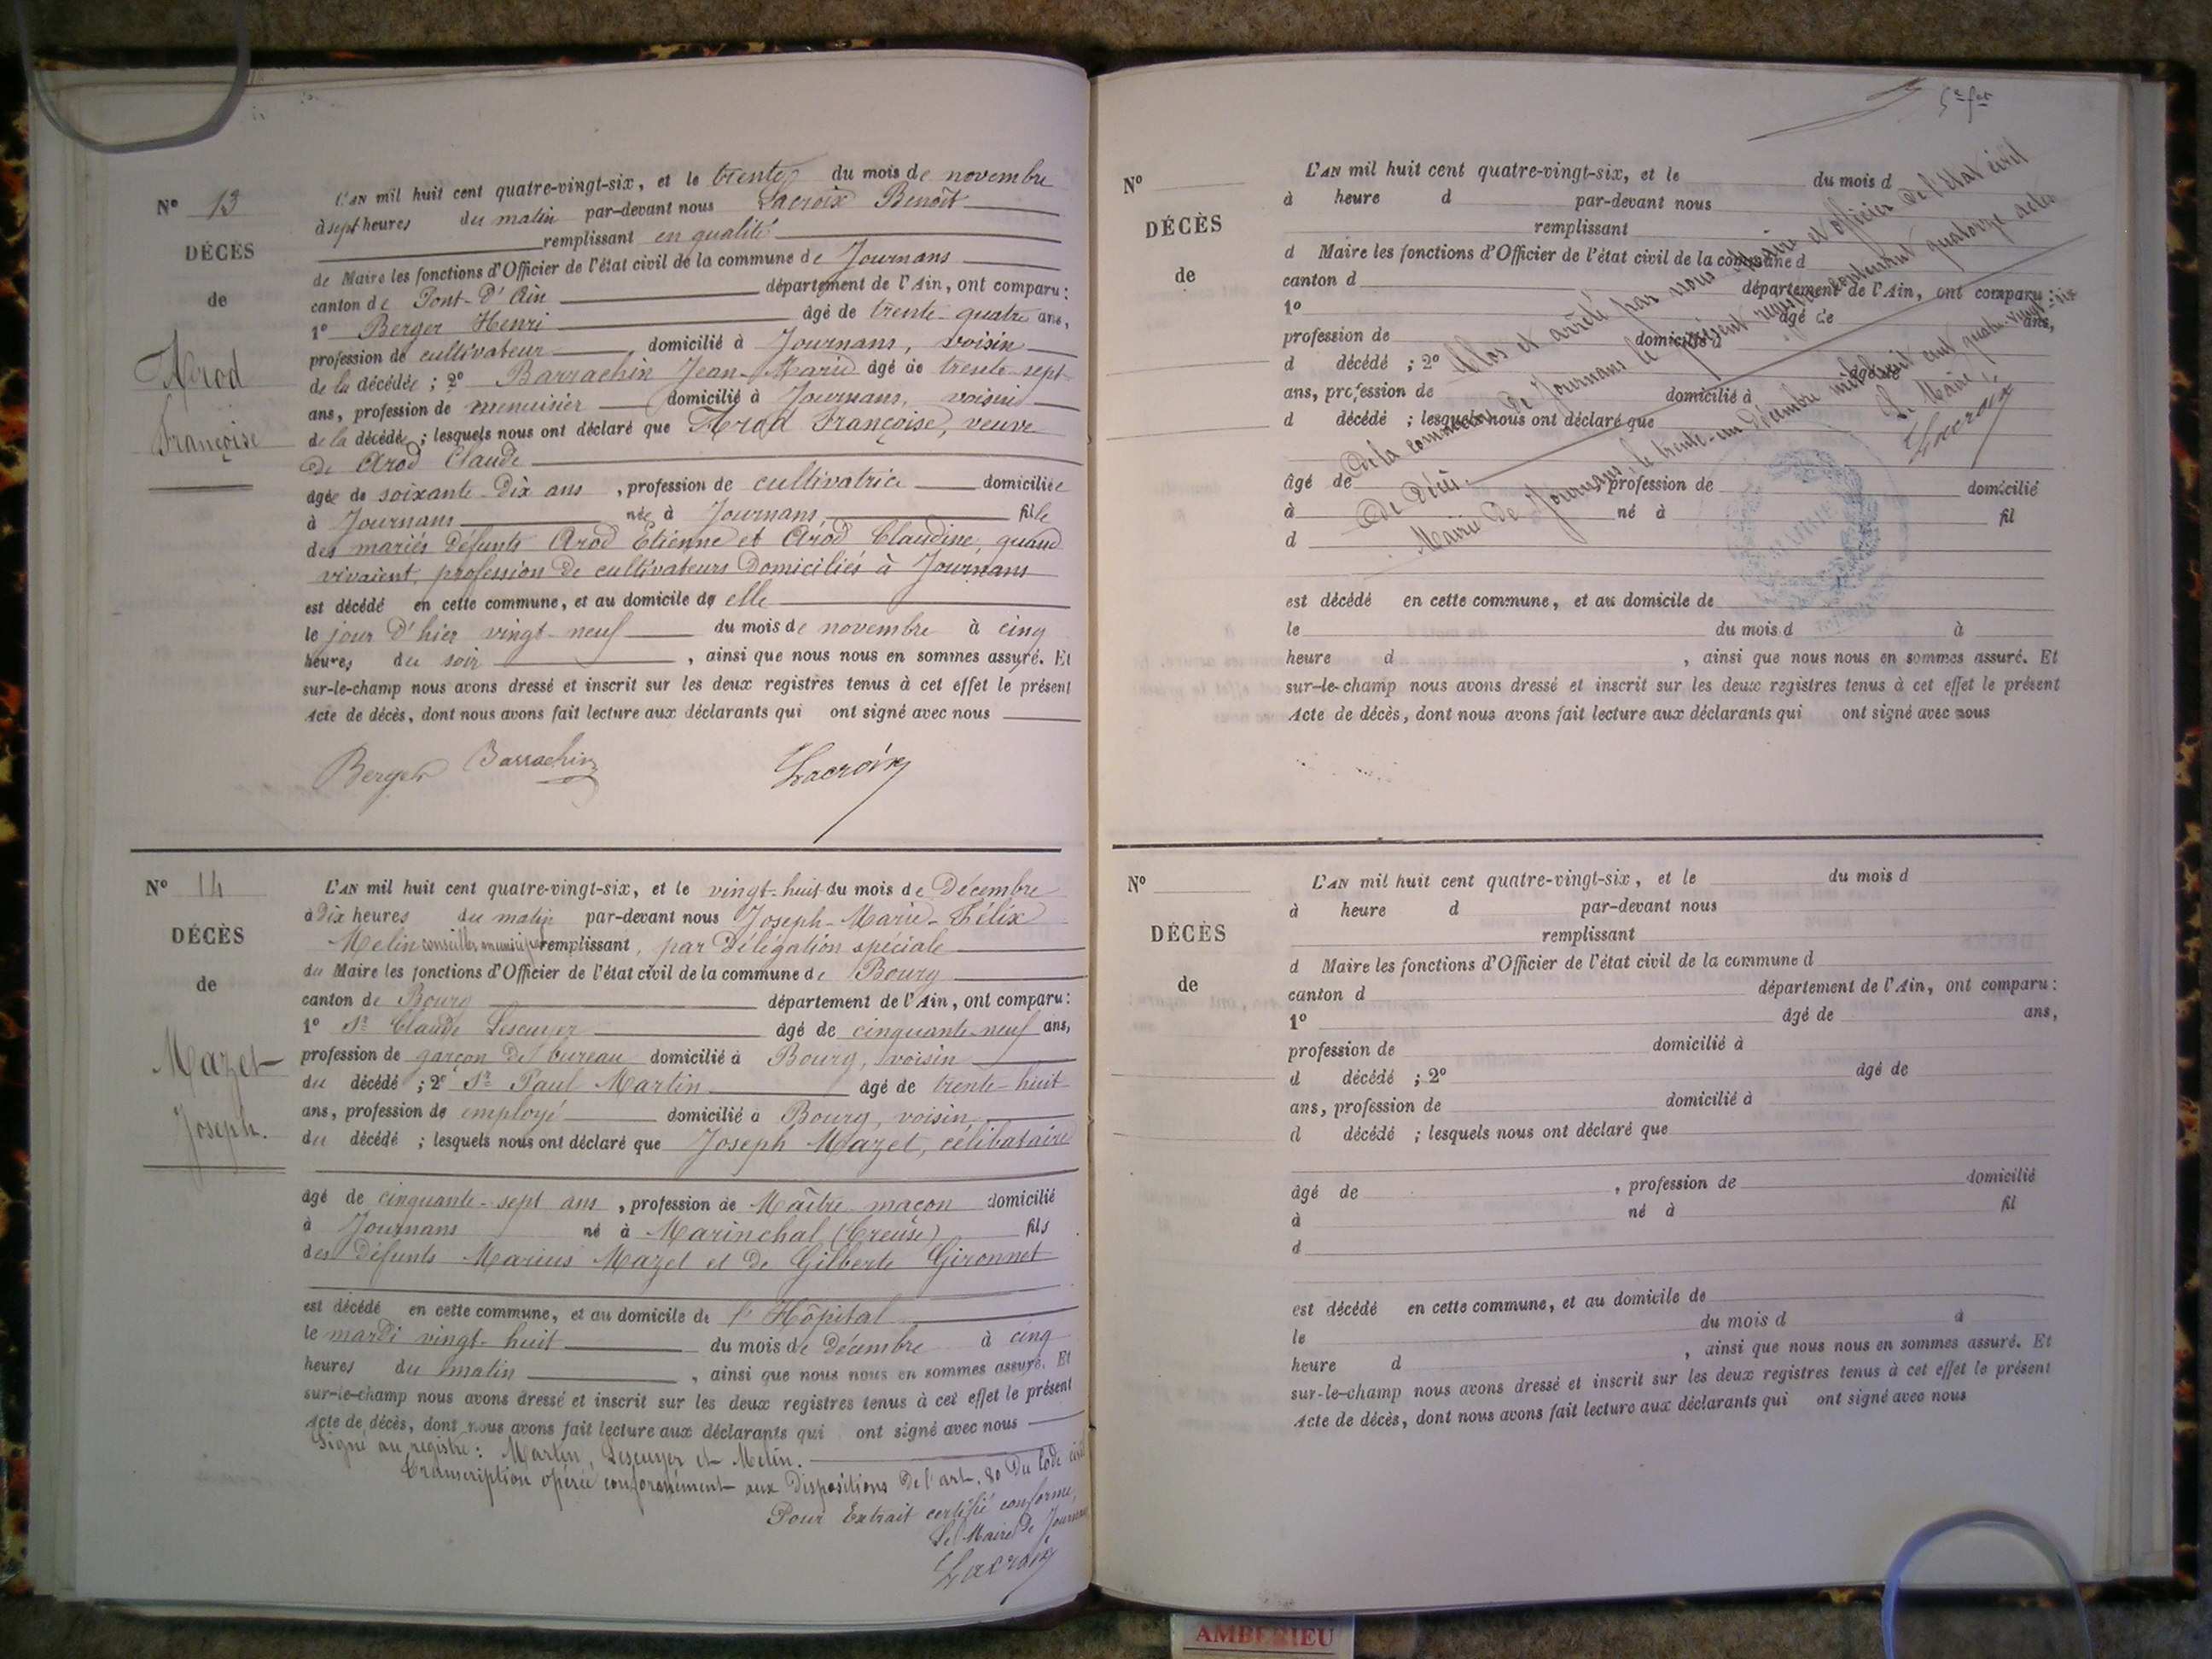 Nº 13
DÉCÈS
de
Arod
Françoise
L'AN mil huit cent quatre-vingt-six, et le trente du mois de novembre
à sept heures du matin par-devant nous Lacroix Benoît
remplissant en qualité
de Maire les fonctions d'Officier de l'état civil de la commune de Journans
canton de Pont-d'Ain département de l'Ain, ont comparu :
1º Berger Henri âgé de trente-quatre ans,
profession de cultivateur domicilié à Journans, voisin
de la décédée ; 2º Barrachin Jean-Marie âgé de trente-sept
ans, profession de menuisier domicilié à Journans, voisin
de la décédée ; lesquels nous ont déclaré que Arod Françoise, veuve
de Arod Claude
âgée de soixante-dix ans , profession de cultivatrice domiciliée
à Journans née à Journans, fille
des mariés défunts Arod Etienne et Arod Claudine, quand
vivaient, profession de cultivateurs domiciliés à Journans
est décédé en cette commune, et au domicile de elle
le jour d'hier vingt-neuf du mois de novembre à cinq
heures du soir , ainsi que nous nous en sommes assuré. Et
sur-le-champ nous avons dressé et inscrit sur les deux registres tenus à cet effet le présent
Acte de décès, dont nous avons fait lecture aux déclarants qui ont signé avec nous
Berger Barrachin Lacroix
Nº 14
DÉCÈS
de
Mazet
Joseph.
L'AN mil huit cent quatre-vingt-six, et le vingt-huit du mois de Décembre
à Dix heures du matin par-devant nous Joseph-Marie-Félix
Melin conseiller municipal remplissant, par délégation spéciale
du Maire les fonctions d'Officier de l'état civil de la commune de Bourg
canton de Bourg département de l'Ain, ont comparu :
1º Sr Claude Lescuyer âgé de cinquante-neuf ans,
profession de garçon de bureau domicilié à Bourg, voisin
du décédé ; 2º Sr Paul Martin âgé de trente-huit
ans, profession de employé domicilié à Bourg, voisin
du décédé ; lesquels nous ont déclaré que Joseph Mazet, célibataire
âgé de cinquante-sept ans , profession de Maître maçon domicilié
à Journans né à Marinchal (Creuse) fils
des défunts Marius Mazet et de Gilberte Gironnet
est décédé en cette commune, et au domicile de l'Hôpital
le mardi vingt-huit du mois de décembre à cinq
heures du matin , ainsi que nous nous en sommes assuré. Et
sur-le-champ nous avons dressé et inscrit sur les deux registres tenus à cet effet le présent
Acte de décès, dont nous avons fait lecture aux déclarants qui ont signé avec nous
Signé au registre : Martin, Lescuyer et Melin.
Transcription opérée conformément aux dispositions de l'art. 80 du Code civil
Pour Extrait certifié conforme,
Le Maire de Journans
Lacroix
Nº
DÉCÈS
de
L'AN mil huit cent quatre-vingt-six, et le du mois d
à heure d par-devant nous
remplissant
d Maire les fonctions d'Officier de l'état civil de la commune d
canton d département de l'Ain, ont comparu :
1º âgé de ans,
profession de domicilié à
d décédé ; 2º âgé de
ans, profession de domicilié à
d décédé ; lesquels nous ont déclaré que
âgé de , profession de domicilié
à né à fil
d
est décédé en cette commune, et au domicile de
le du mois d à
heure d , ainsi que nous nous en sommes assuré. Et
sur-le-champ nous avons dressé et inscrit sur les deux registres tenus à cet effet le présent
Acte de décès, dont nous avons fait lecture aux déclarants qui ont signé avec nous
Clos et arrêté par nous maire et officier de l'état civil
de la commune de Journans le présent registre contenant quatorze actes
de Décès.
Mairie de Journans, le trente-un Décembre mil huit cent quatre-vingt-six
Le Maire,
Lacroix
MAIRIE
Nº
DÉCÈS
de
L'AN mil huit cent quatre-vingt-six, et le du mois d
à heure d par-devant nous
remplissant
d Maire les fonctions d'Officier de l'état civil de la commune d
canton d département de l'Ain, ont comparu :
1º âgé de ans,
profession de domicilié à
d décédé ; 2º âgé de
ans, profession de domicilié à
d décédé ; lesquels nous ont déclaré que
âgé de , profession de domicilié
à né à fil
d
est décédé en cette commune, et au domicile de
le du mois d à
heure d , ainsi que nous nous en sommes assuré. Et
sur-le-champ nous avons dressé et inscrit sur les deux registres tenus à cet effet le présent
Acte de décès, dont nous avons fait lecture aux déclarants qui ont signé avec nous
AMBERIEU